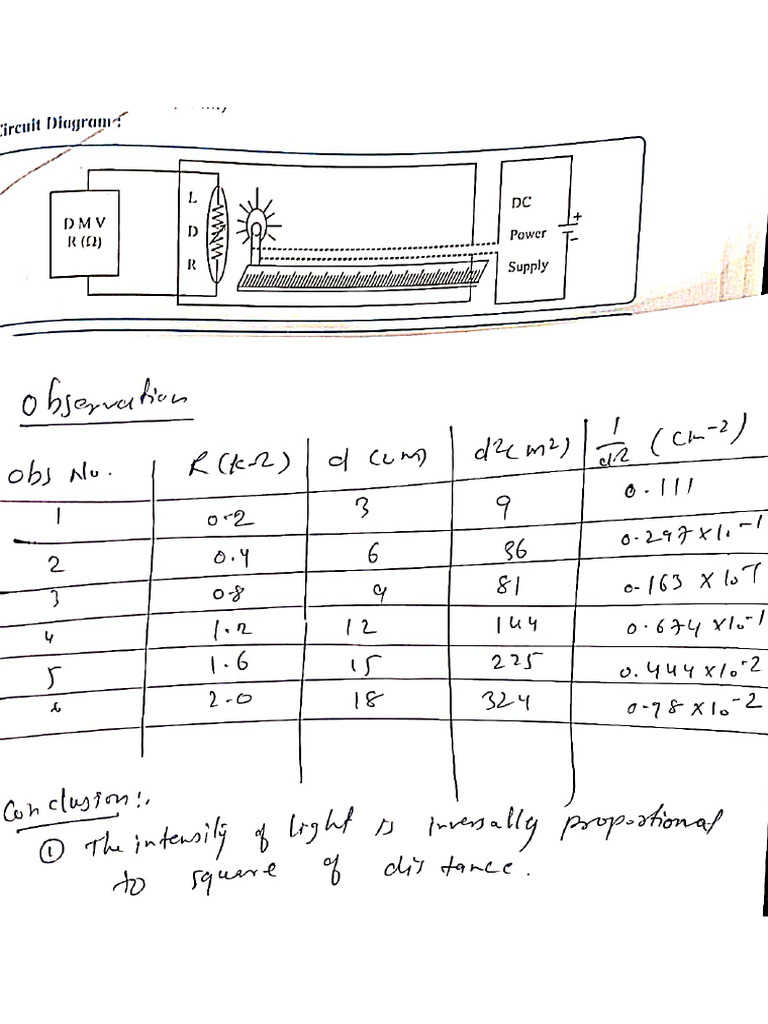 Circuit Diagram:
D M V
R (Ω)
L
D
R
DC
Power
Supply
+
-
Observation
Obs No. R (kΩ) d (cm) d2(m2) 1/d2 (cm-2)
1 0.2 3 9 0.111
2 0.4 6 36 0.297 x 10-1
3 0.8 9 81 0.163 x 10-1
4 1.2 12 144 0.674 x 10-1
5 1.6 15 225 0.444 x 10-2
6 2.0 18 324 0.98 x 10-2
Conclusion:.
① The intensity of light is inversally proportional
to square of distance.